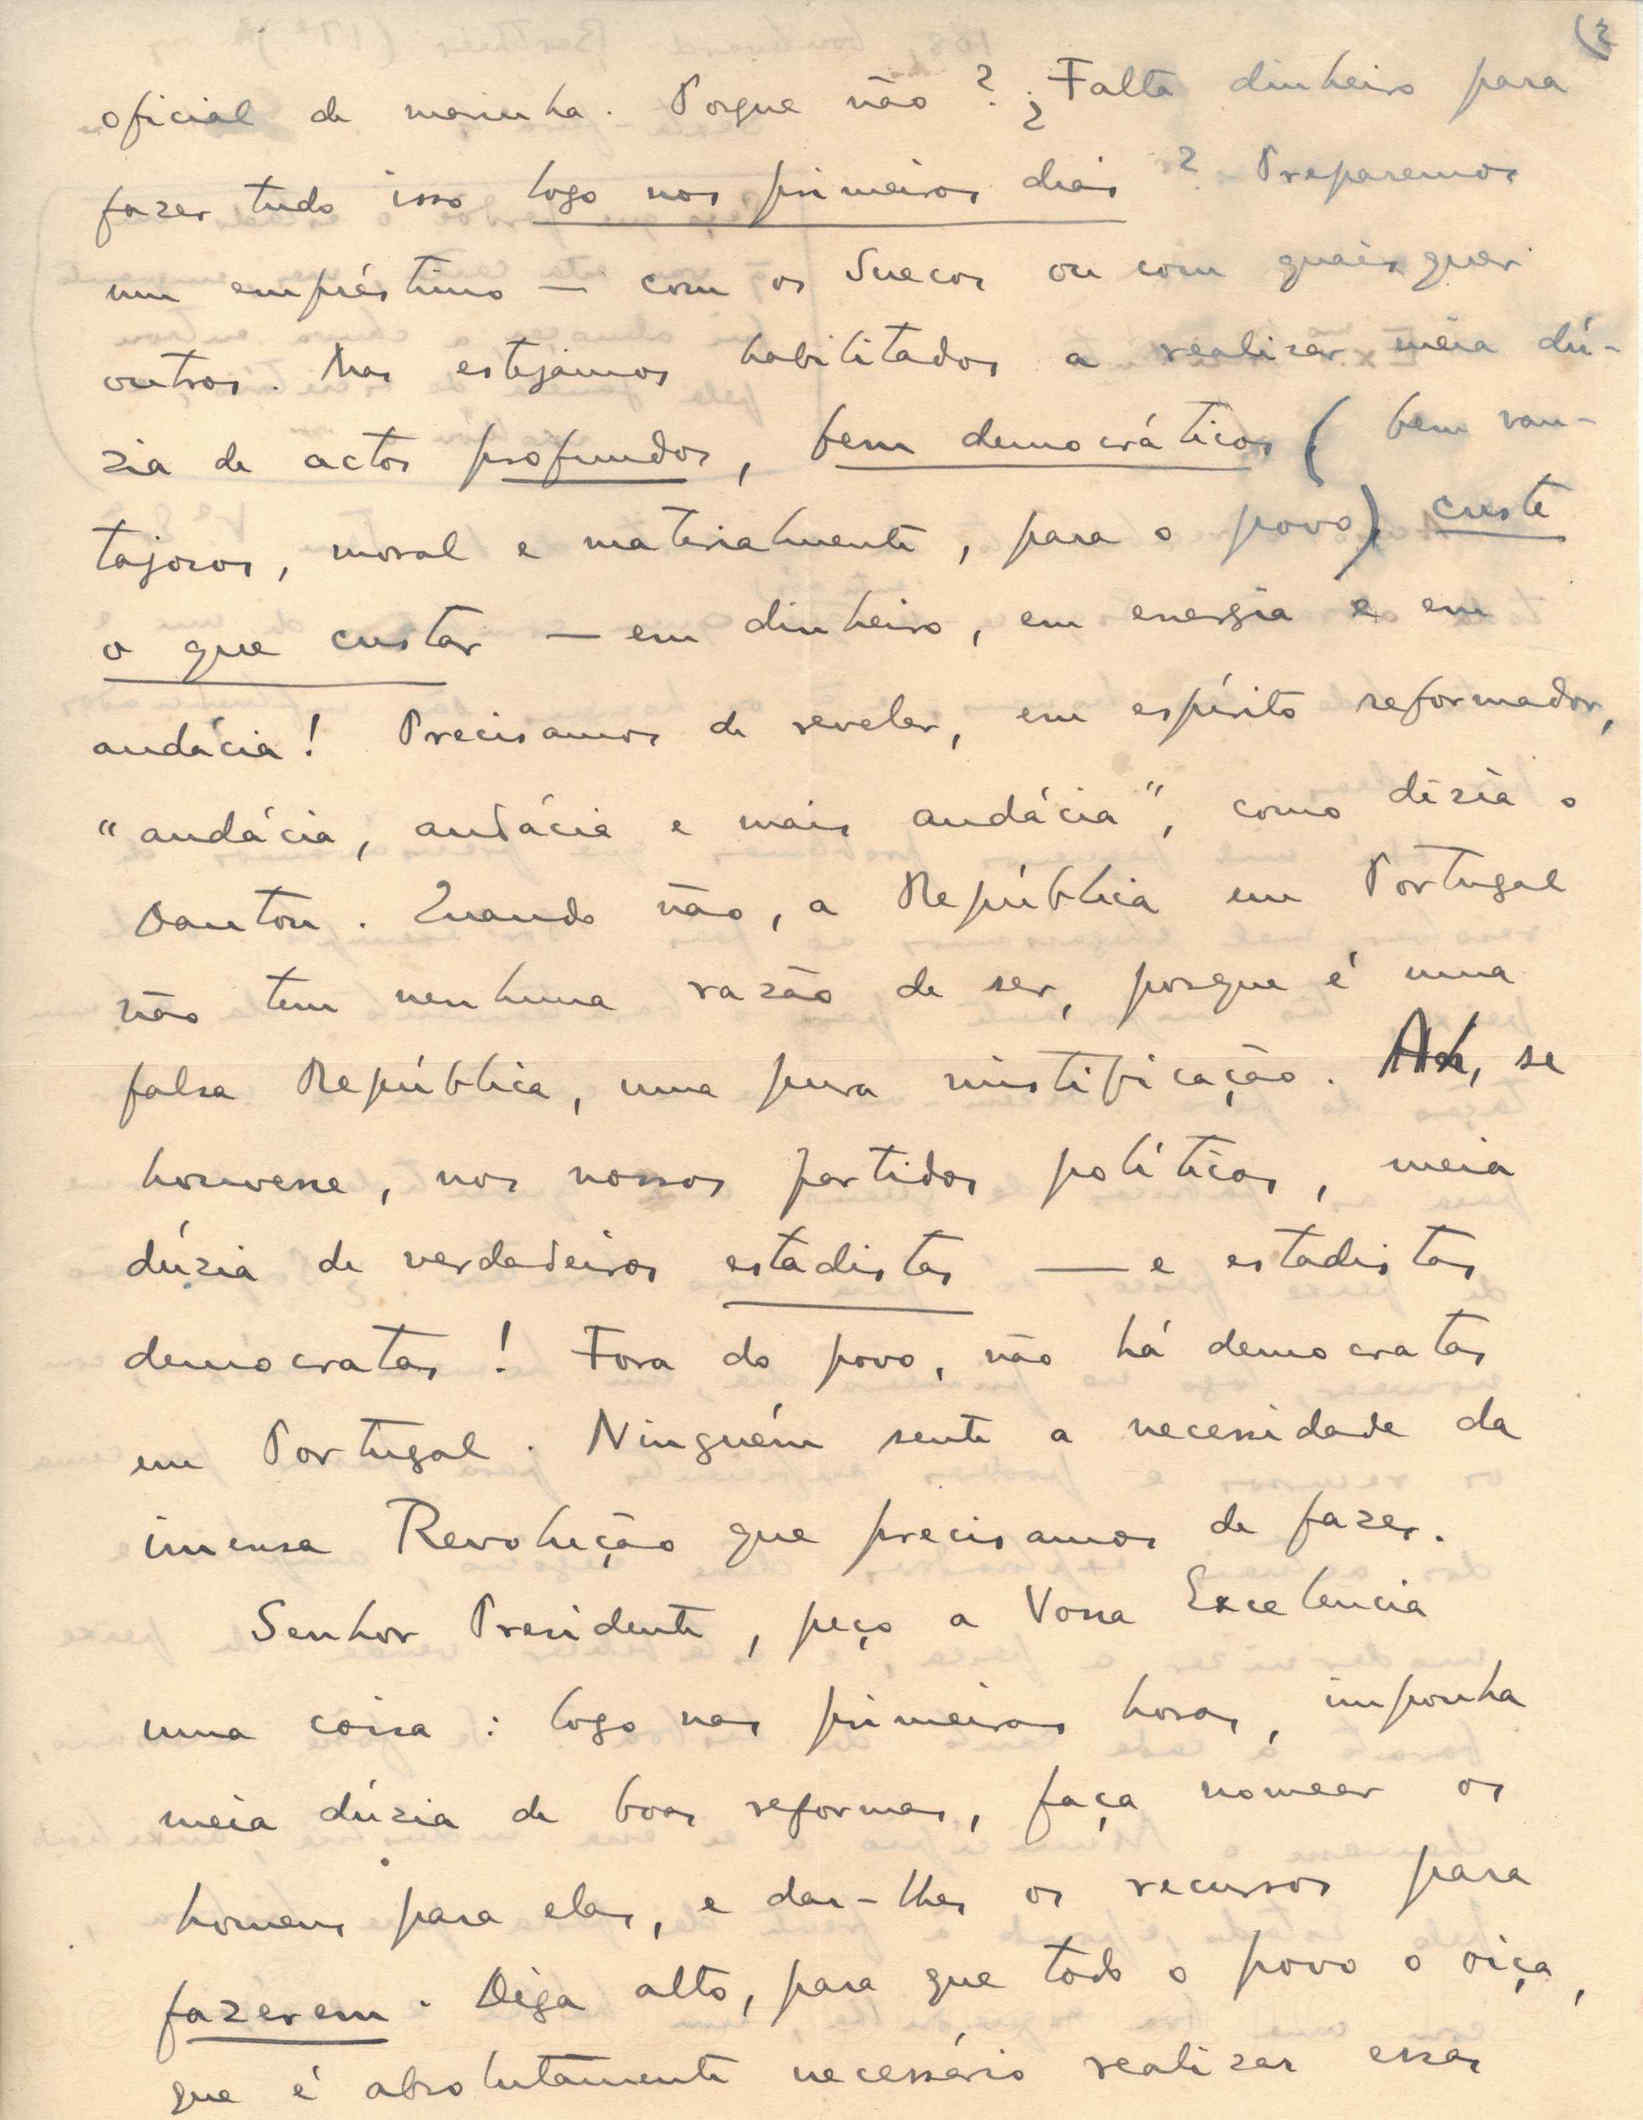 (2
oficial de marinha. Porque não? ¿Falta dinheiro para
fazer tudo isso logo nos primeiros dias? Preparemos
um empréstimo — com os Suecos ou com quaisquer
outros. Mas estejamos habilitados a realizar meia dú-
zia de actos profundos, bem democráticos (bem van-
tajosos, moral e materialmente, para o povo), custe
o que custar — em dinheiro, em energia e em
audácia! Precisamos de revelar, em espírito reformador,
"audácia, audácia e mais audácia", como dizia o
Danton. Quando não, a República em Portugal
não tem nenhuma razão de ser, porque é uma
falsa República, uma pura mistificação. Ah, se
houvesse, nos nossos partidos políticos, meia
dúzia de verdadeiros estadistas — e estadistas
democratas! Fora do povo, não há democratas
em Portugal. Ninguém sente a necessidade da
imensa Revolução que precisamos de fazer.
Senhor Presidente, peço a Vossa Excelencia
uma coisa: logo nas primeiras horas, imponha
meia dúzia de boas reformas, faça nomear os
homens para elas, e dar-lhes os recursos para
fazerem. Diga alto, para que todo o povo o oiça,
que é absolutamente necessário realizar essas